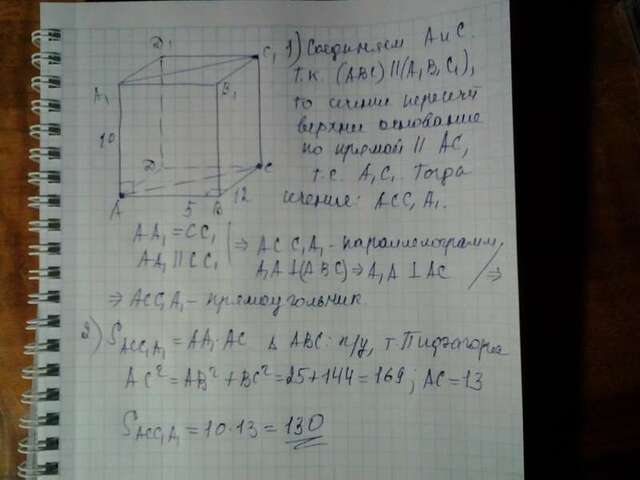 D₁
C₁
A₁
B₁
10
D
C
A
5
B
12
1) Соединяем A и C.
т.к. (ABC) || (A₁B₁C₁),
то сечение пересечёт
верхнее основание
по прямой || AC,
т.е. A₁C₁. Тогда
сечение: ACC₁A₁.
AA₁ = CC₁
AA₁ || CC₁
⇒ ACC₁A₁ - параллелограмм
A₁A ⊥ (ABC) ⇒ A₁A ⊥ AC
⇒
⇒ ACC₁A₁ - прямоугольник.
2) S ACC₁A₁ = AA₁·AC Δ ABC: п/у, т. Пифагора
AC² = AB² + BC² = 25 + 144 = 169; AC = 13
S ACC₁A₁ = 10·13 = 130